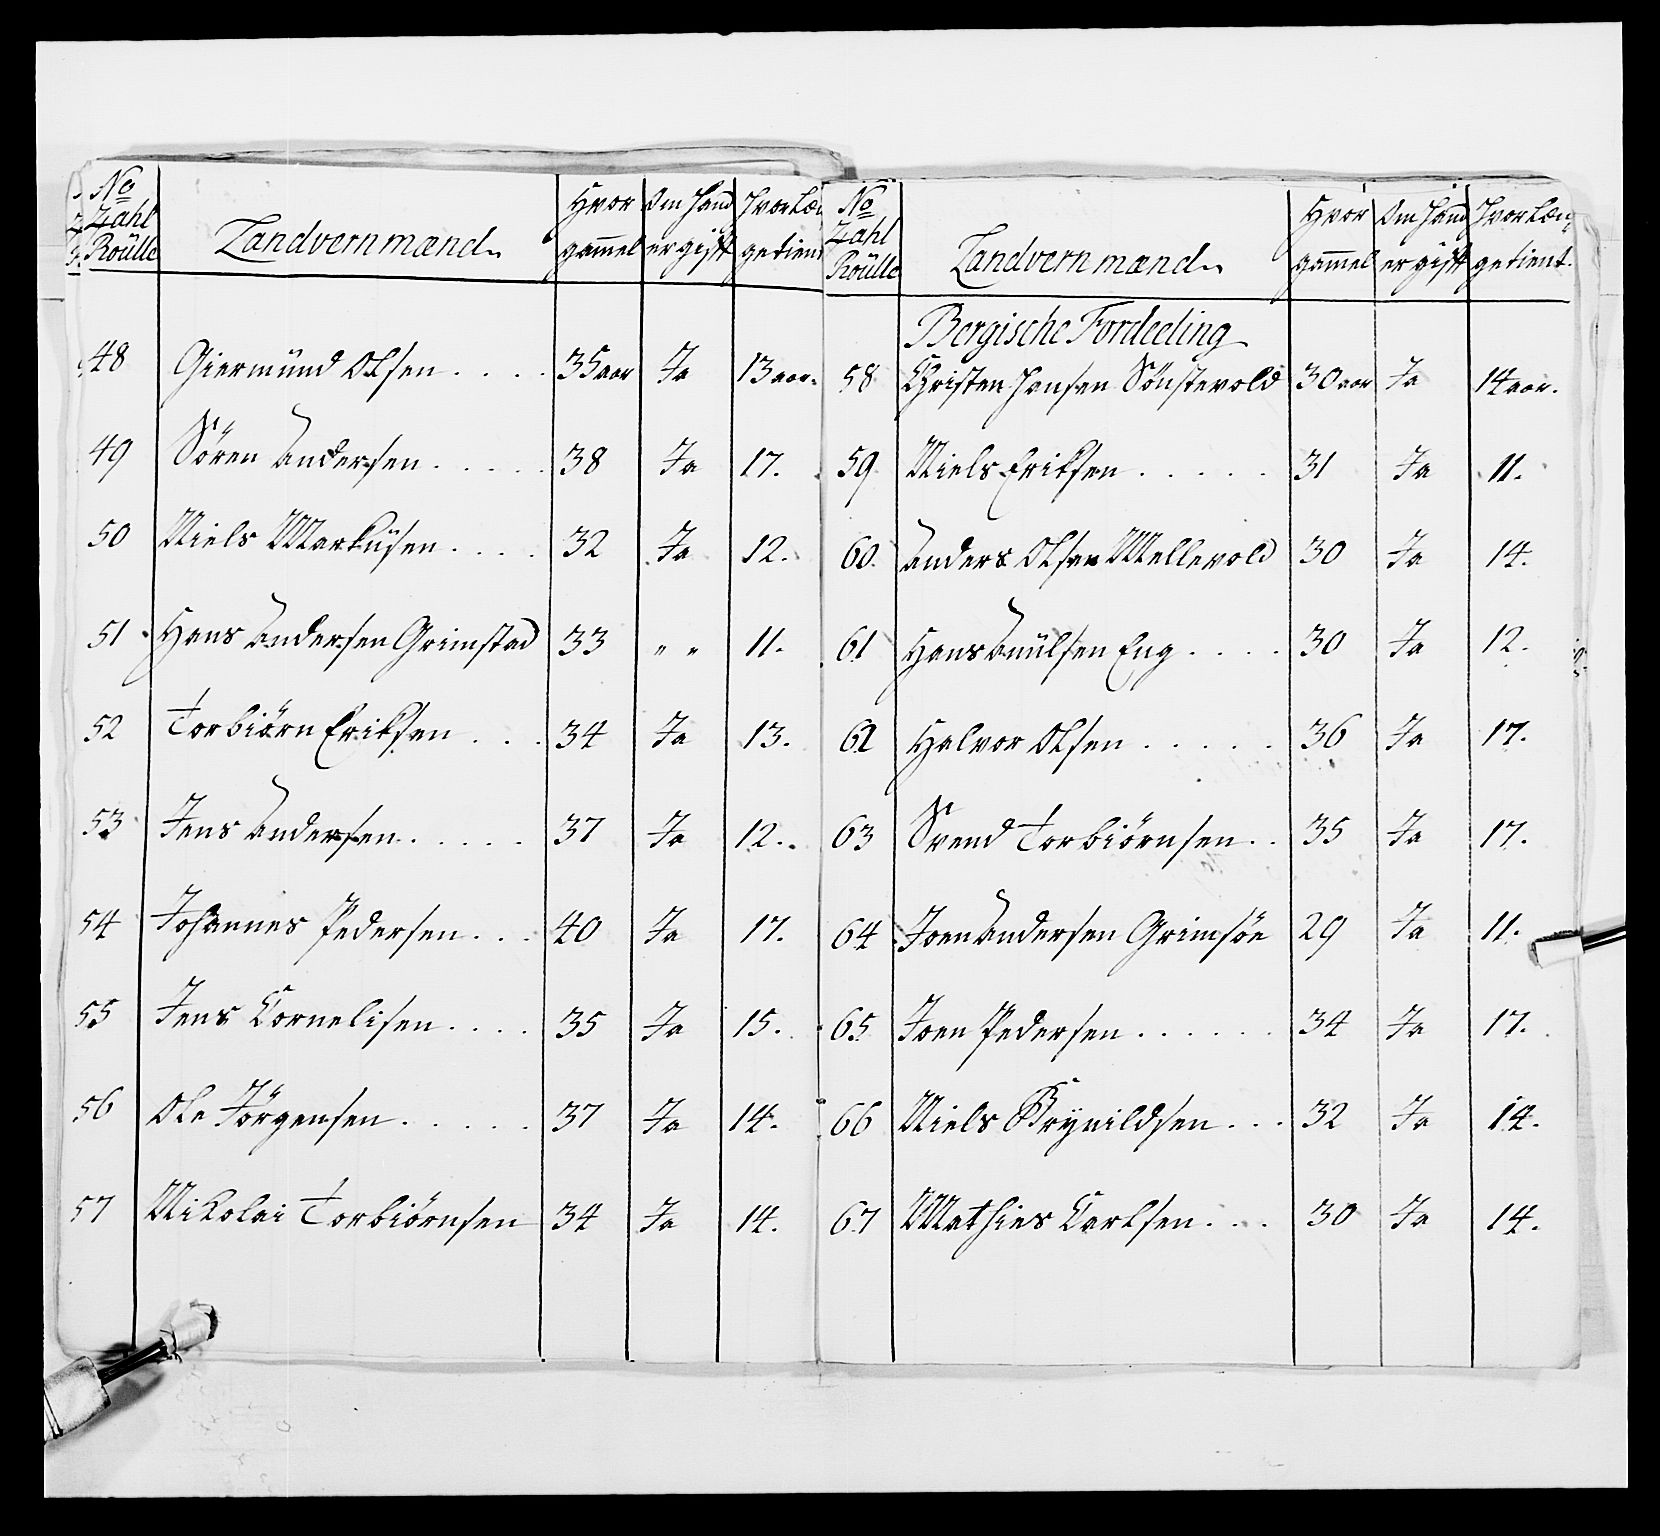 No Zahl Roülle | Landvernmænd | Hvor gammel | Om Hand er gift | Hvor Læn getient
48 Giermünd Olsen . . . . 35 aar Ja 13 aar.
49 Sören Andersen . . . . . 38 Ja 17.
50 Niels Markusen . . . . 32 Ja 12.
51 Hans Andersen Grimstad 33 " " 11.
52 Torbiørn Eriksen . . . 34 Ja 13.
53 Jens Andersen . . . . . 37 Ja 12.
54 Johannes Pedersen . . . 40 Ja 17.
55 Jens Cornelisen . . . . 35 Ja 15.
56 Ole Jörgensen . . . . . 37 Ja 14.
57 Nikolai Torbiørnsen 34 Ja 14.
No Zahl Roülle | Landvernmænd | Hvor gammel | Om Hand er gift | Hvor Læn getient.
Bergische Fordeeling
58 Christen Hansen Sönstevold 30 aar Ja 14 aar.
59 Niels Eriksen . . . . . 31 Ja 11.
60. Anders Olsen Mellevold 30 Ja 14.
61 Hans Anülsen Eng . . . . 30 Ja 12.
62 Halvor Olsen . . . . . 36 Ja 17.
63 Svend Torbiørnsen . . 35 Ja 17.
64 Joen Andersen Grimsöe 29 Ja 11.
65 Joen Pedersen . . . . . . 34 Ja 17.
66 Niels Brynildsen . . . 32 Ja 14.
67 Mathies Carlsen . . . 30 Ja 14.